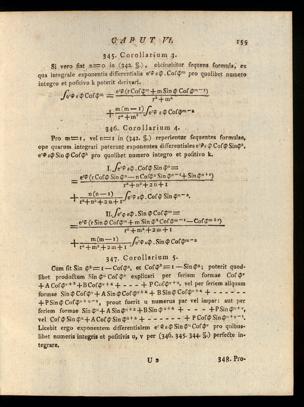 CAPUT VI, 159
345. Corollarium 3.
Si vero fiat n=0 in (342. §.), obtinebitur sequens formula, ex
qua integrale exponentis differentialis e^rφ ∂φ Cosφ^m pro quolibet numero
integro et positivo k poterit derivari.
∫e^rφ ∂φ Cosφ^m = e^rφ (r Cosφ^m + m Sinφ Cosφ^m−1) / r²+m²
+ m(m−1) / r²+m² ∫e^rφ ∂φ Cosφ^m−2
346. Corollarium 4.
Pro m=1, vel n=1 in (342. §.) reperientur sequentes formulae,
ope quarum integrari poterunt exponentes differentiales e^rφ ∂φ Cosφ Sinφ^n,
e^rφ ∂φ Sinφ Cosφ^n pro quolibet numero integro et positivo k.
I. ∫e^rφ ∂φ. Cosφ Sinφ^n =
= e^rφ (r Cosφ Sinφ^n − n Cosφ² Sinφ^n−1 + Sinφ^n+1) / r²+n²+2n+1
+ n(n−1) / r²+n²+2n+1 ∫e^rφ ∂φ. Cosφ Sinφ^n−2.
II. ∫e^rφ ∂φ. Sinφ Cosφ^m =
= e^rφ (r Sinφ Cosφ^m + m Sinφ² Cosφ^m−1 − Cosφ^m+1) / r²+m²+2m+1
+ m(m−1) / r²+m²+2m+1 ∫e^rφ ∂φ. Sinφ Cosφ^m−2
347. Corollarium 5.
Cum sit Sinφ² = 1 − Cosφ², et Cosφ² = 1 − Sinφ²; poterit quod-
libet productum Sinφ^u Cosφ^v explicari per seriem formae Cosφ^v
+ A Cosφ^v+2 + B Cosφ^v+4 + - - - + P Cosφ^v+u, vel per seriem aliquam
formae Sinφ Cosφ^v + A Sinφ Cosφ^v+2 + B Sinφ Cosφ^v+4 + - - - -
+ P Sinφ Cosφ^v+u−1, prout fuerit u numerus par vel impar: aut per
seriem formae Sinφ^u + A Sinφ^u+2 + B Sinφ^u+4 + - - - + P Sinφ^u+v,
vel Cosφ Sinφ^u + A Cosφ Sinφ^u+2 + - - - - - - + P Cosφ Sinφ^u+v−1.
Licebit ergo exponentem differentialem e^rφ ∂φ Sinφ^u Cosφ^v pro quibus-
libet numeris integris et positivis u, v per (346. 345. 344. §.) perfecte in-
tegrare.
U 2 348. Pro-